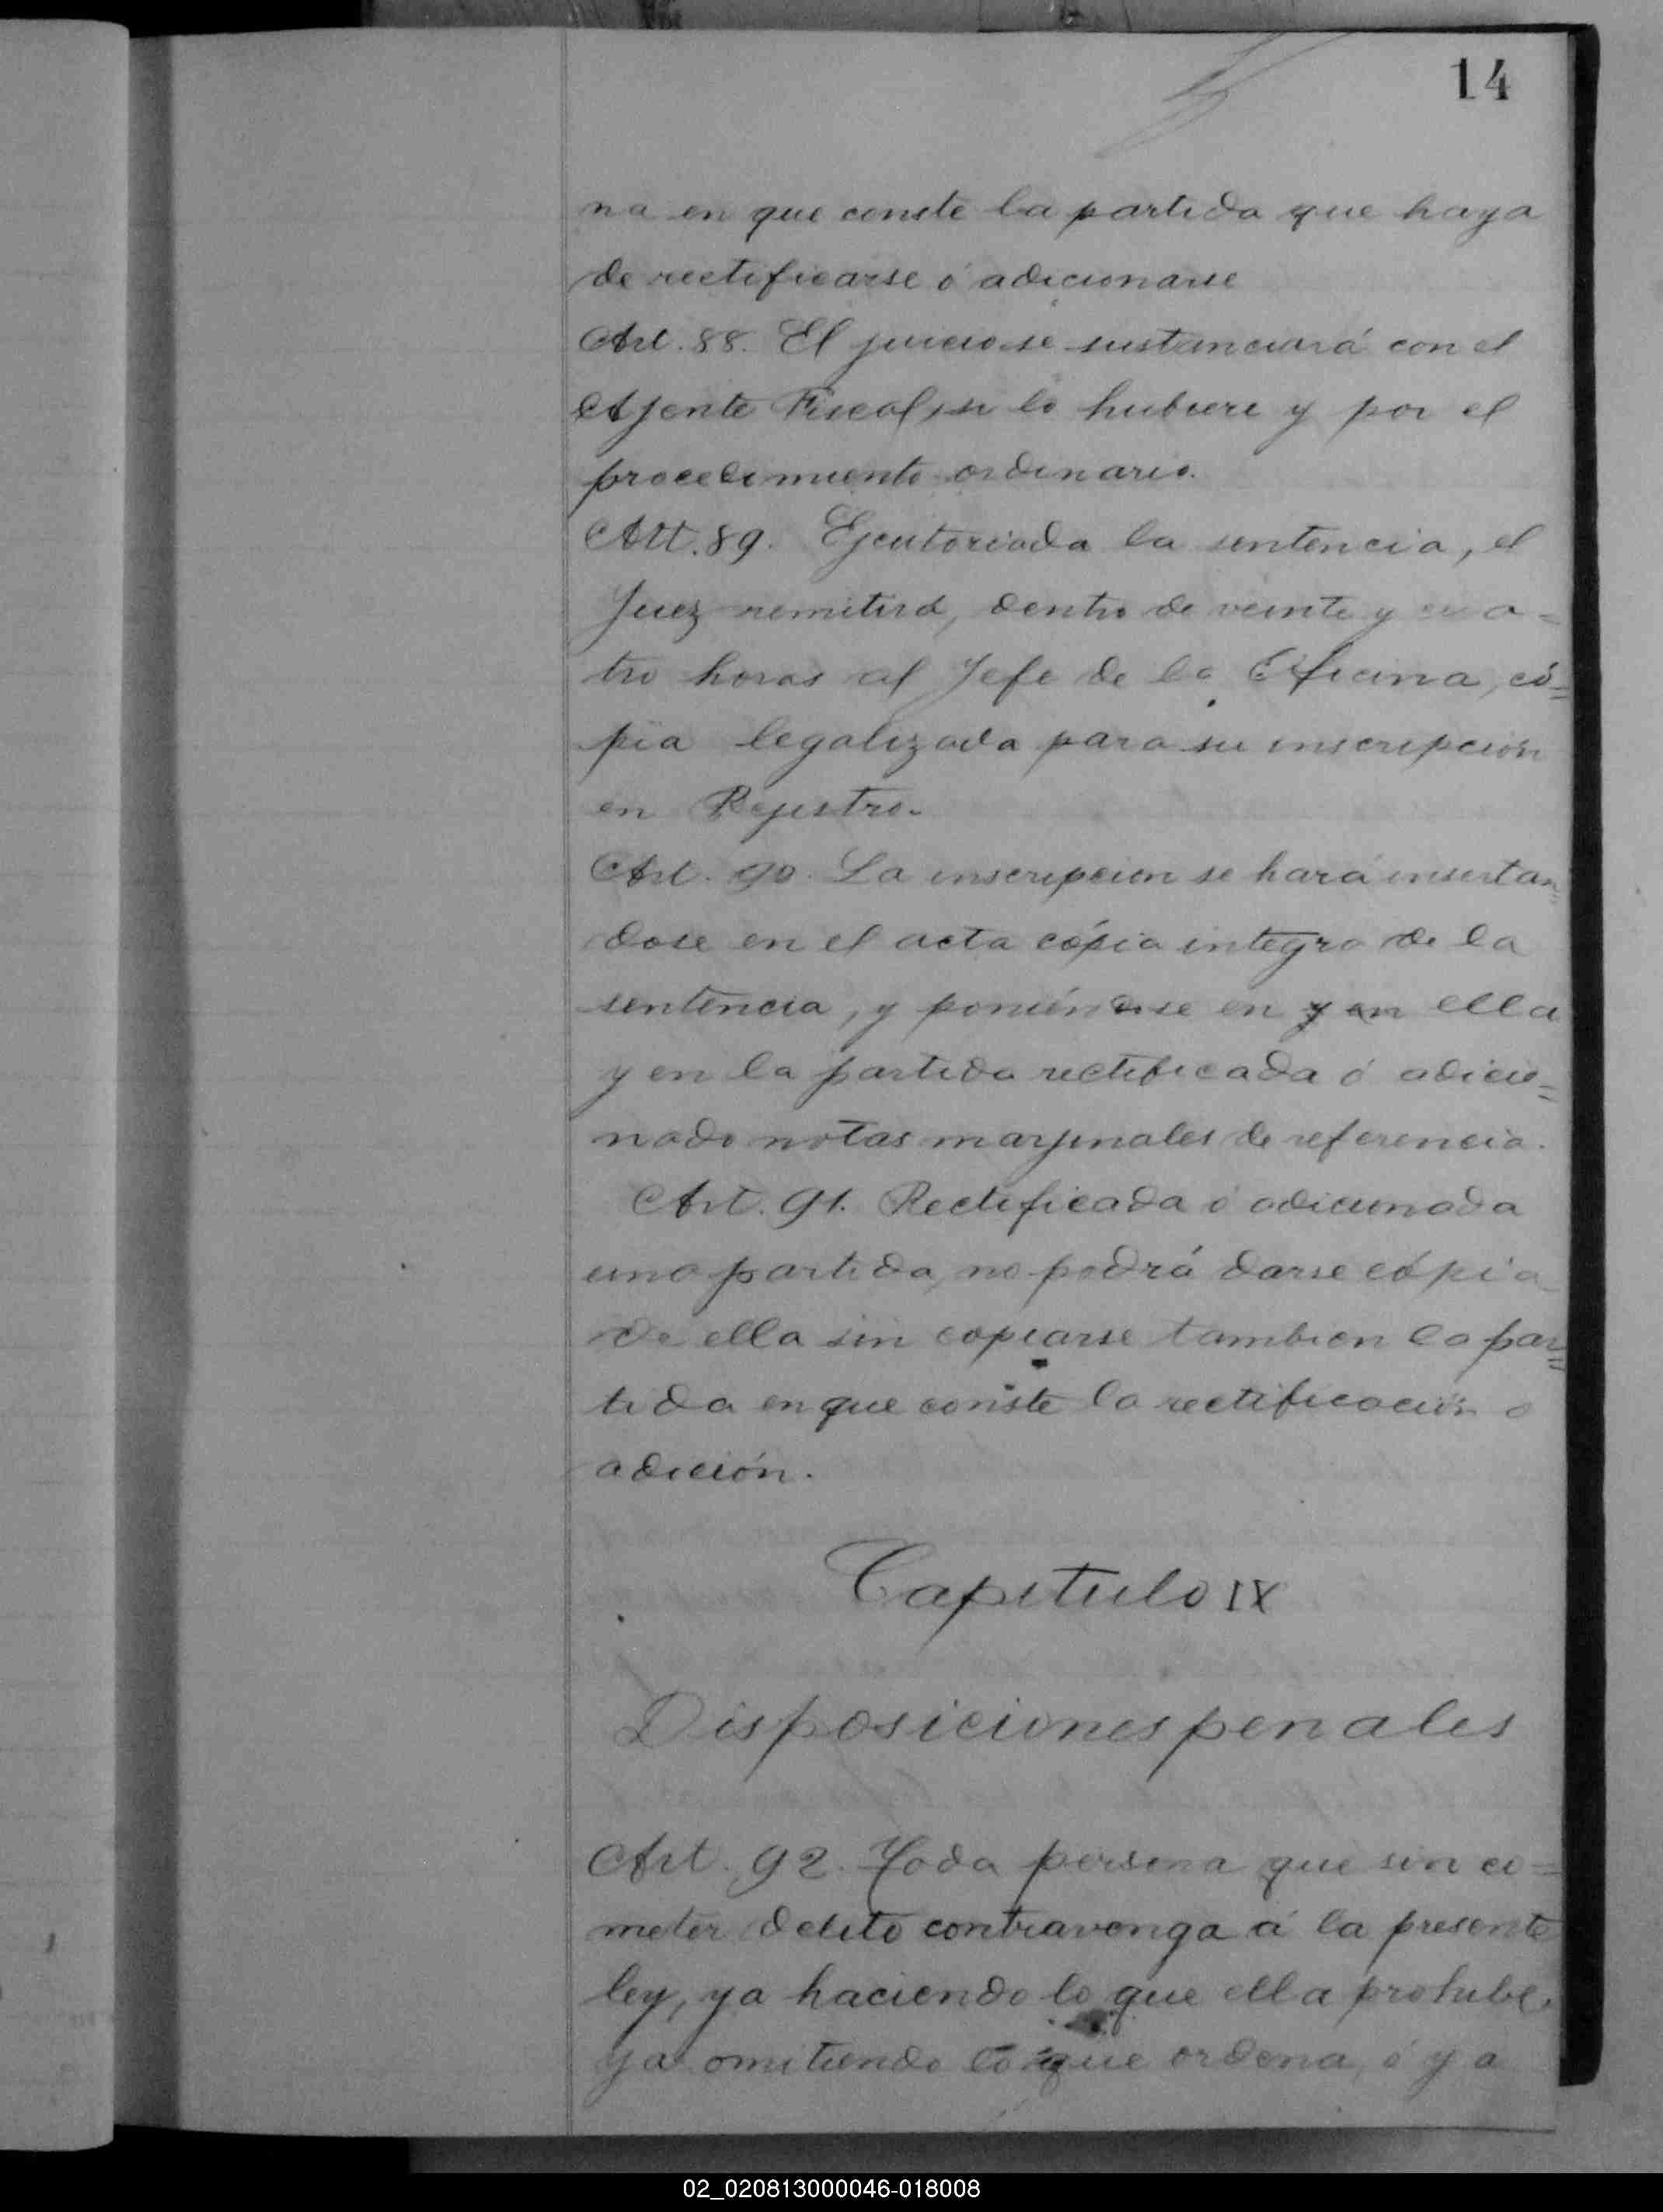 14
na en que conste la partida que haya
de rectificarse ó adicionarse
Art. 88. El juicio se sustanciará con el
Ajente Fiscal, si lo hubiere y por el
procedimiento ordinario.
Art. 89. Ejecutoriada la sentencia, el
Juez remitirá, dentro de veinte y cua-
tro horas al Jefe de la Oficina, có=
pia legalizada para su inscripción
en Rejistro.
Art. 90. La inscripcion se hará insertan=
dose en el acta cópia integra de la
sentencia, y poniéndose en y en ella
y en la partida rectificada ó adicio=
nada notas marjinales de referencia.
Art. 91. Rectificada ó adicionada
una partida, no podrá darse cópia
de ella sin copiarse tambien la par=
tida en que conste la rectificación o
adición.
Capitulo IX
Disposiciones penales
Art. 92. Toda persona que sin co=
meter delito contravenga á la presente
ley, ya haciendo lo que ella prohibe,
ya omitiendo lo que ordena, ó ya
02_020813000046-018008